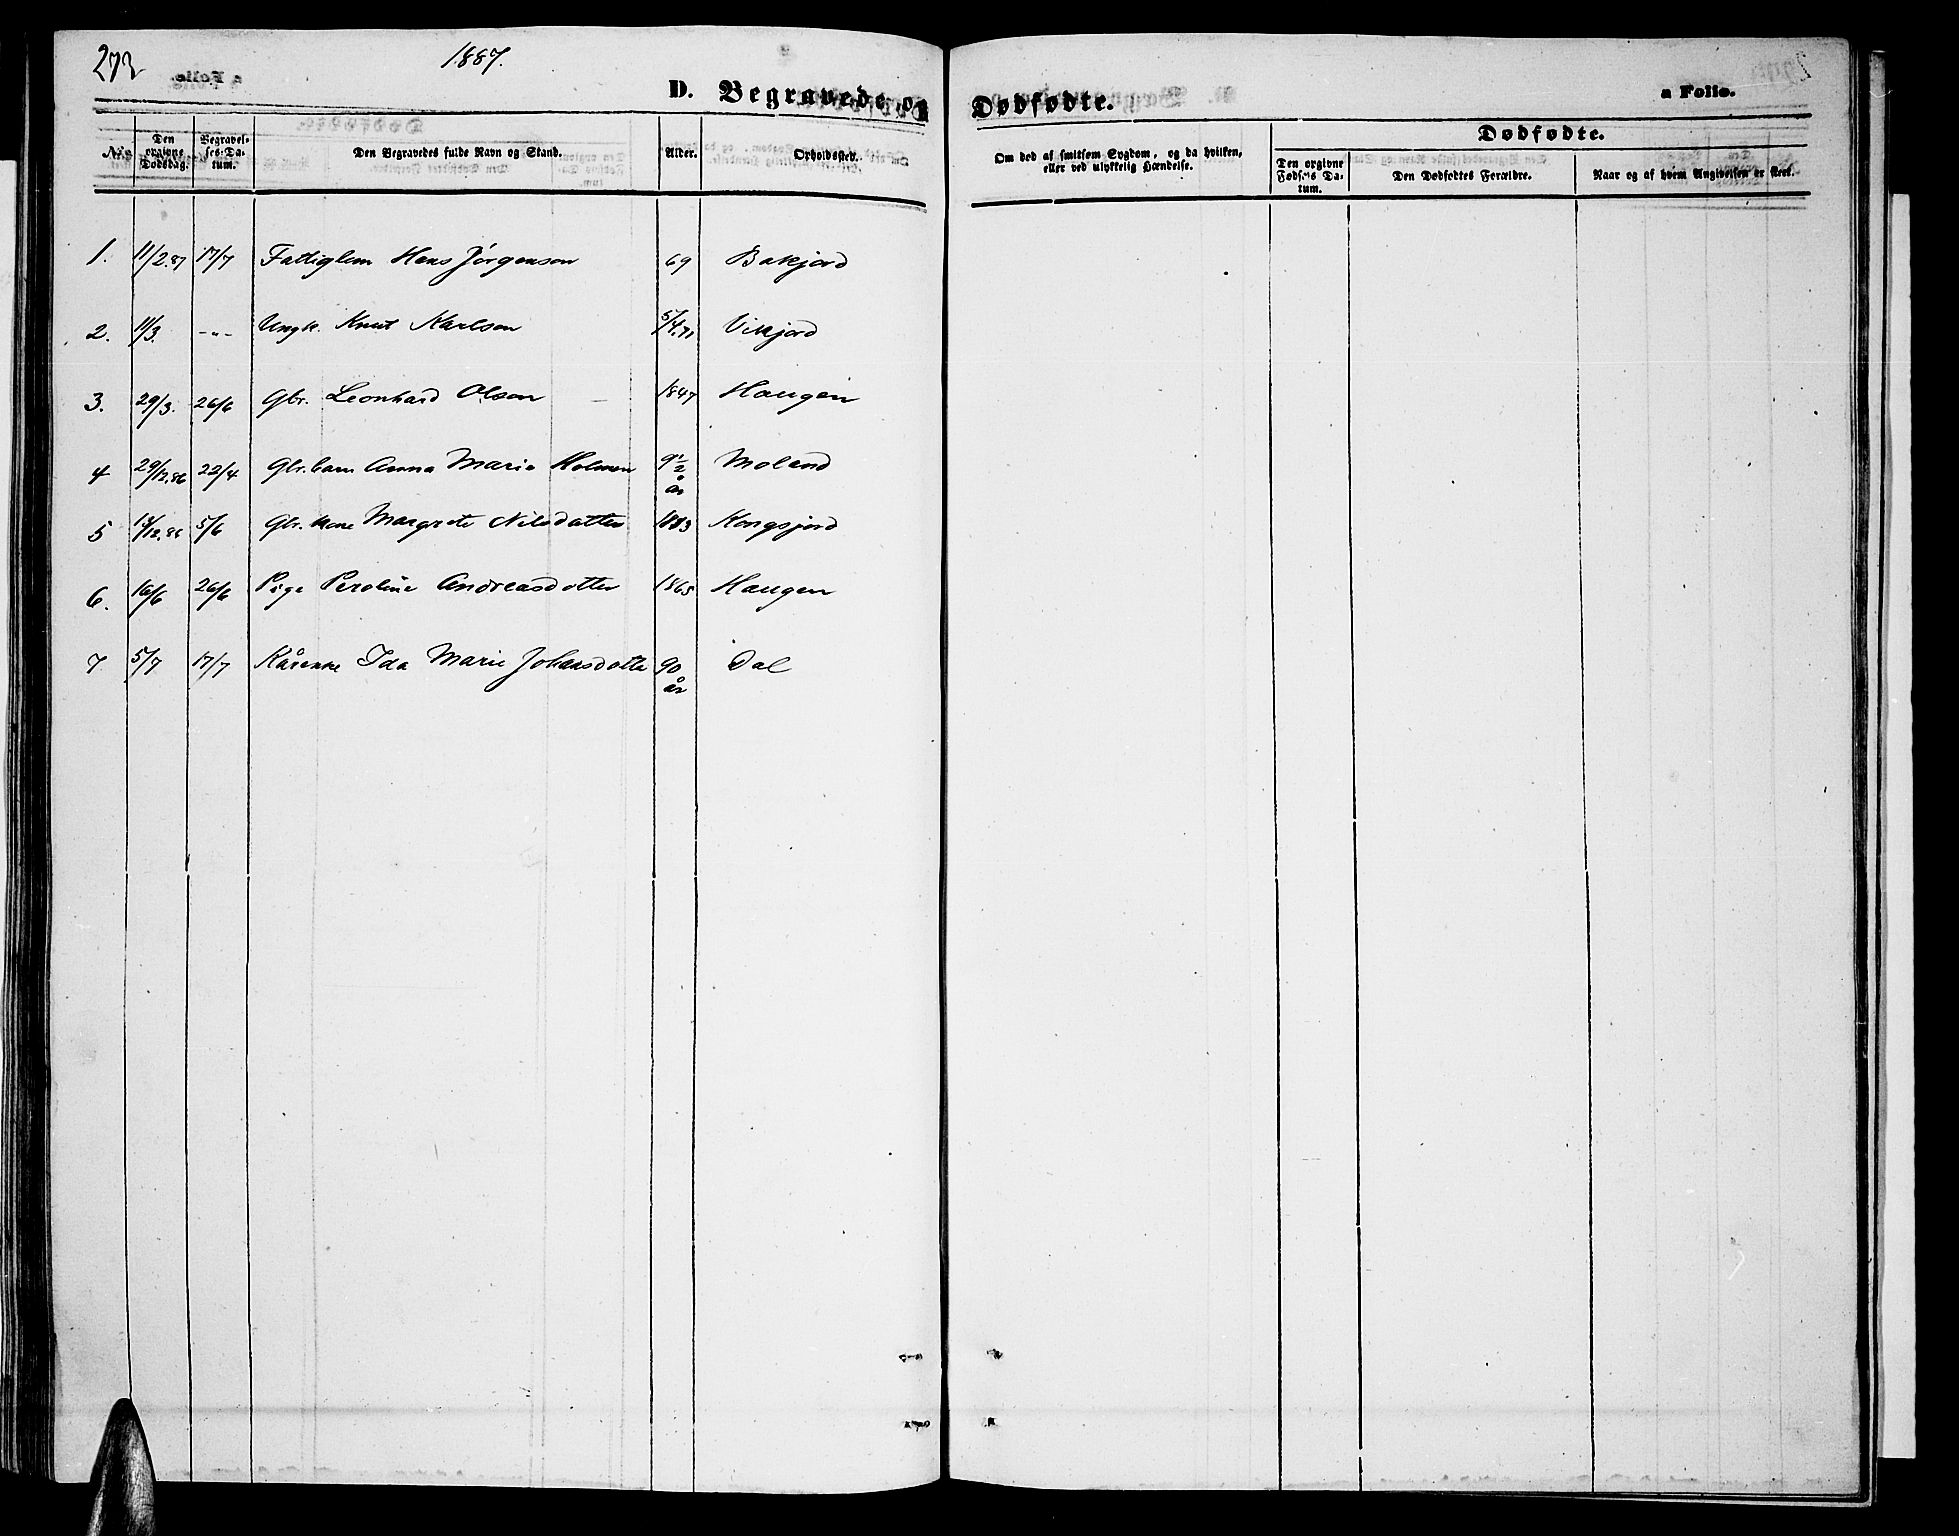 272
1887.
D. Begravede og Dødfødte. a Folio.
No.
Den opgivne Dødsdag.
Begravelses-Datum.
Den Begravedes fulde Navn og Stand.
Alder.
Opholdssted.
Om død af smitsom Sygdom, og da hvilken, eller ved ulykkelig Hændelse.
Dødfødte.
Den opgivne Fødsels Datum.
Den Dødfødtes Forældre.
Naar og af hvem Angivelsen er skeet.
1. 11/2.87 17/7 Fattiglem Hans Jørgenson 69 Bakjord
2. 11/3. -„- Ungk. Knut Karlson 5/4.71 Vikjord
3. 29/3. 26/6 Gbr. Leonhard Olson 1847 Haugen
4 29/12.86 22/4 Gbr. barn Anna Marie Holmen 9½ år Moland
5 5/6 Gbr. kone Margrete Nilsdatter Kongsjord
6. 16/6 26/6 Pige Peroline Andreasdotter 1865 Haugen
7. 5/7 17/7 Kårenke Ida Marie Johansdotte 90 år Dal